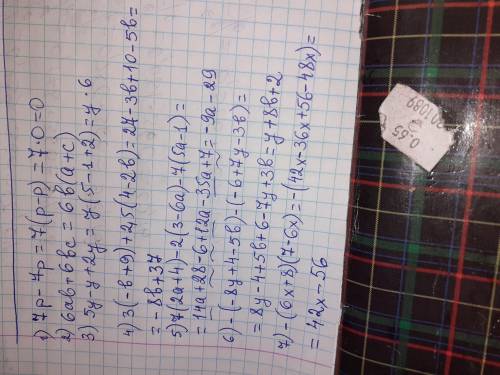 1) 7p - 4p = 7(p-p) = 7·0=0
2) 6ab+6bc = 6b(a+c)
3) 5y-y+2y = y(5-1+2)=y·6
4) 3(-b+9)+2,5(4-2b)=27-3b+10-5b=
= -8b+37
5) 7(2a+4)-2(3-6a)-7(5a-1)=
= 14a+28-6+12a-35a+7=-9a-29
6) -(-8y+4-5b)-(-6+7y-3b)=
= 8y-4+5b+6-7y+3b=y+8b+2
7) -(6x+8)(7-6x)=-(42x-36x+56-48x)=
= 42x-56
0.65
201089